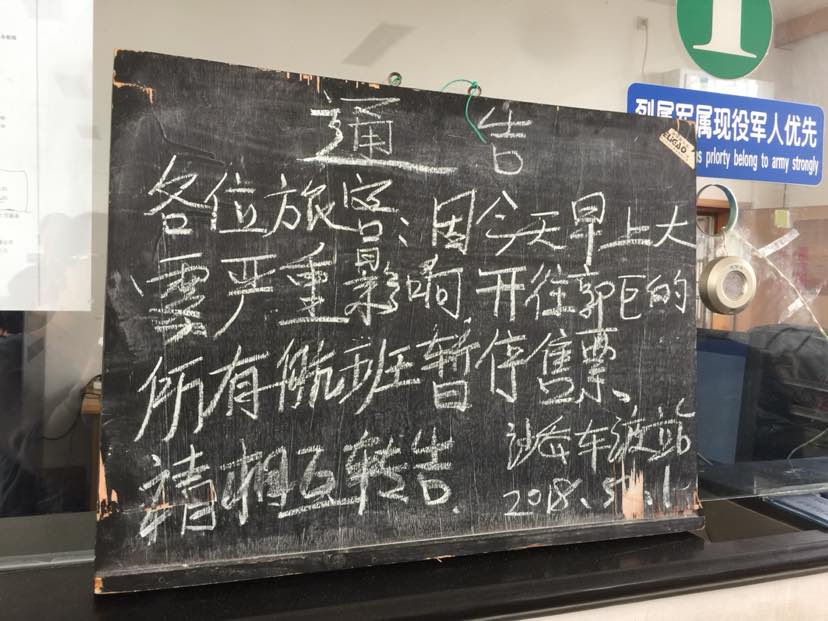 通告
各位旅客、因今天早上大
雾严重影响.开往郭巨的
所有航班暂停售票、
请相互转告.
沙岙车渡站
2018.5.1
属军属现役军人优先
priorty belong to army strongly